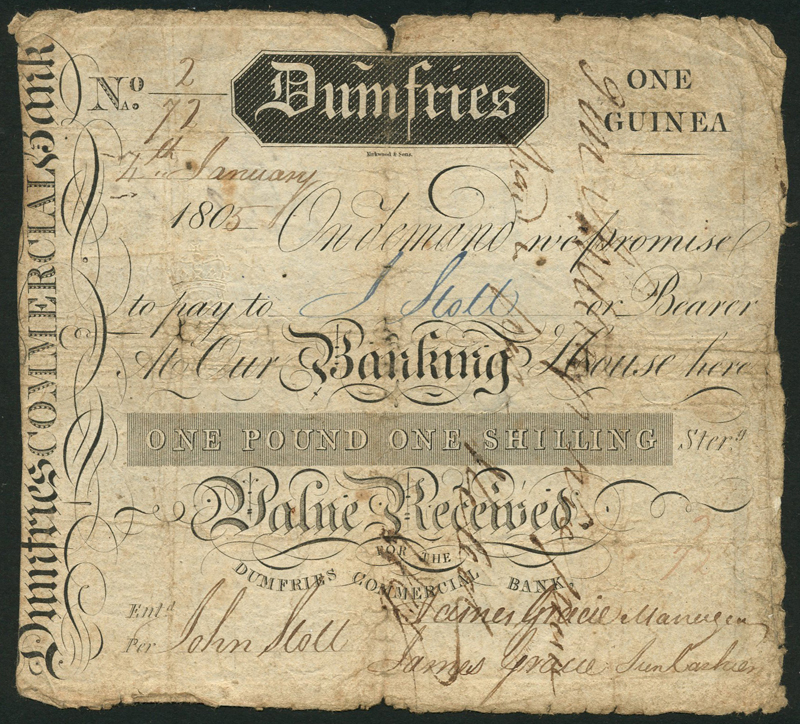 Dumfries COMMERCIAL Bank
No. 2
72
Dumfries
ONE
GUINEA
Kirkwood & Sons.
7th January
1805 On demand we promise
to pay to J Stott or Bearer
At Our Banking House here
ONE POUND ONE SHILLING Sterg
Value Received.
FOR THE
DUMFRIES COMMERCIAL BANK,
Entd
Per John Stott
James Gracie Manager
James Gracie Jun Cashier